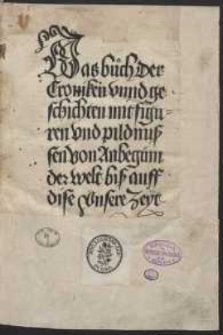 Das bůch Der
Croniken vnnd ge
schichten mit figu
ren vnd pildnuß
sen von Anbeginn
der welt biß auff
dise Vnsere Zeyt